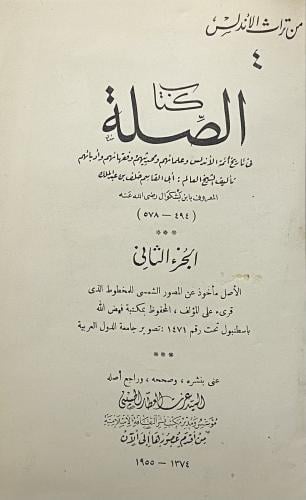 من تراث الأندلس
٤
كتاب
الصلة
في تاريخ أئمة الأندلس وعلمائهم ومحدثيهم وفقهائهم وأدبائهم
تأليف الشيخ العالم : أبي القاسم خلف بن عبد الملك
المعروف بابن بشكوال رضي الله عنه
( ٤٩٤ — ٥٧٨ )
***
الجزء الثاني
الأصل مأخوذ عن المصور الشمسى للمخطوط الذى
قرىء على المؤلف ، المحفوظ بمكتبة فيض الله
باسطنبول تحت رقم ١٤٧١ : تصوير جامعة الدول العربية
***
عنى بنشره ، وصححه ، وراجع أصله
السيد عزت العطار الحسيني
مؤسس ومدير مكتب نشر الثقافة الإسلامية
من أقدم عصورها إلى الآن
١٣٧٤ — ١٩٥٥